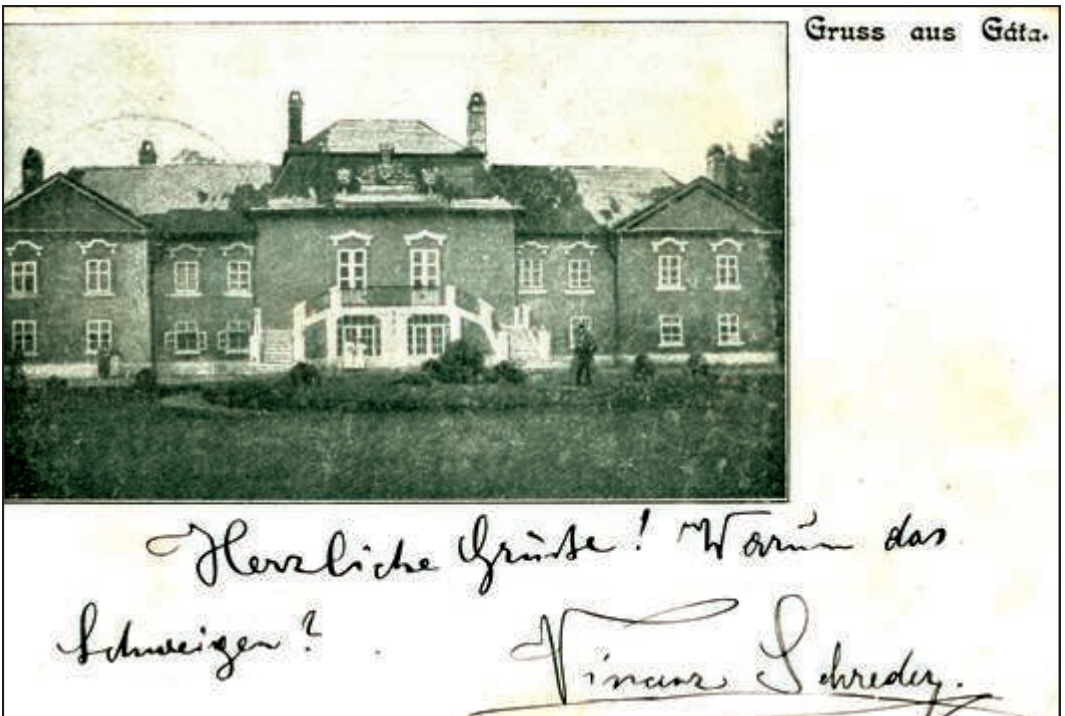 Gruss aus Gáta.
Herzliche Grüße! Warum das
Schweigen?
Schreder.